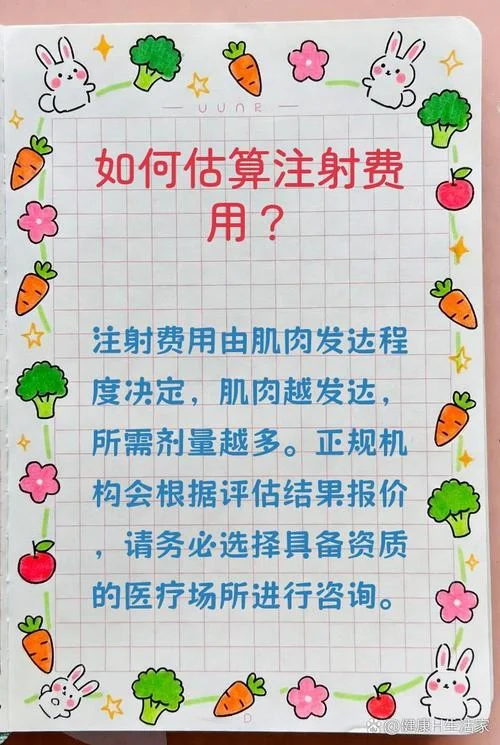 UUNR
如何估算注射费
用？
注射费用由肌肉发达程
度决定，肌肉越发达，
所需剂量越多。正规机
构会根据评估结果报价
，请务必选择具备资质
的医疗场所进行咨询。
D
@健康H生活家